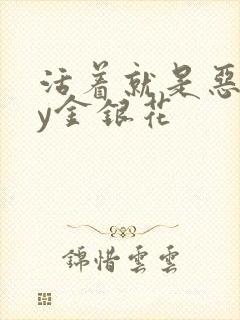 活着就是恶
y金银花
錦惜雲雲